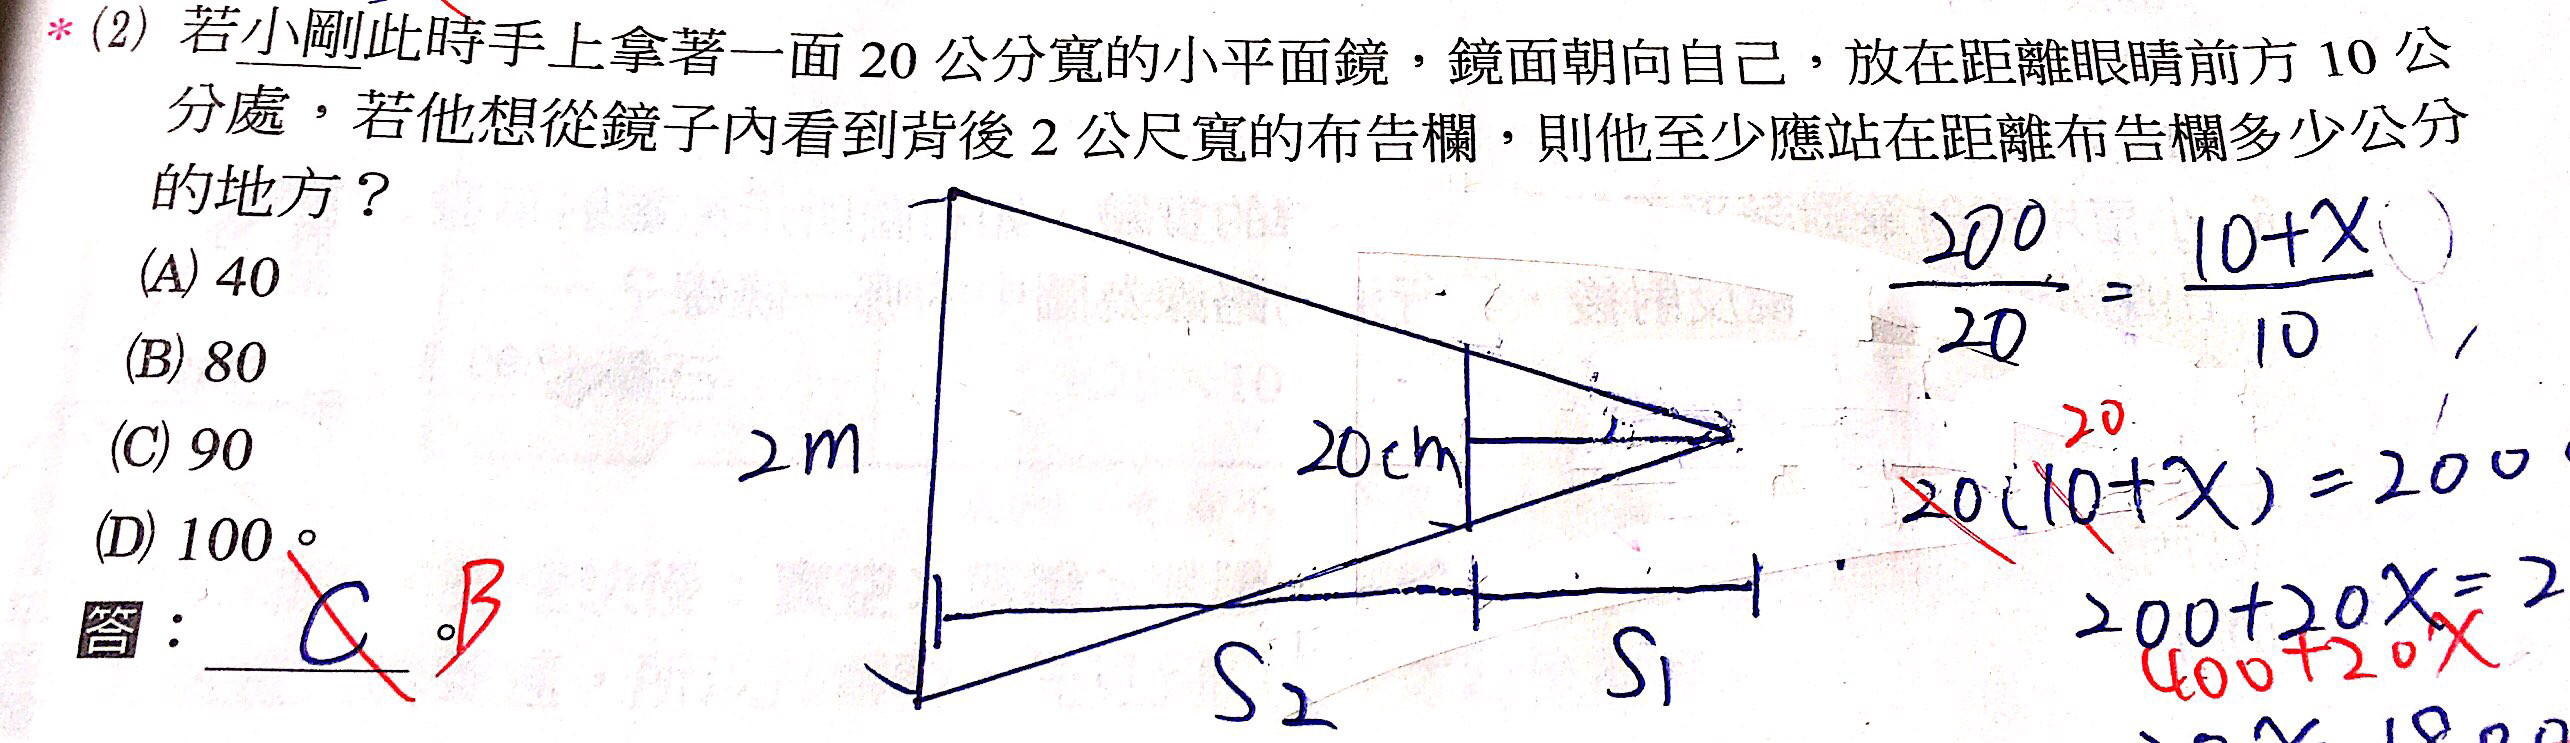 * (2) 若小剛此時手上拿著一面 20 公分寬的小平面鏡，鏡面朝向自己，放在距離眼睛前方 10 公
分處，若他想從鏡子內看到背後 2 公尺寬的布告欄，則他至少應站在距離布告欄多少公分
的地方？
(A) 40
(B) 80
(C) 90
(D) 100。
答：C。B
2m
20cm
S2
S1
200/20 = 10+X/10
20
20(10+X)=200
200+20X=2
400+20X